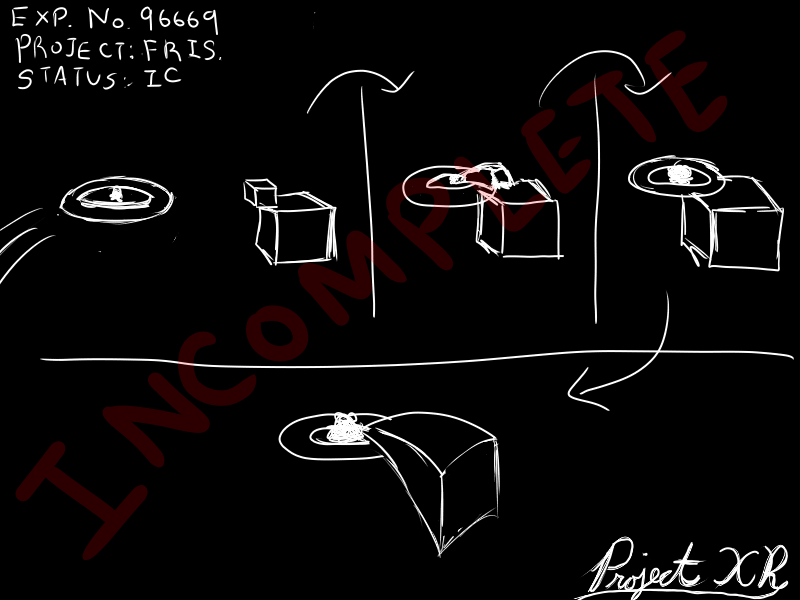 EXP. No. 96669
PROJECT: FRIS.
STATUS: IC
INCOMPLETE
Project XR